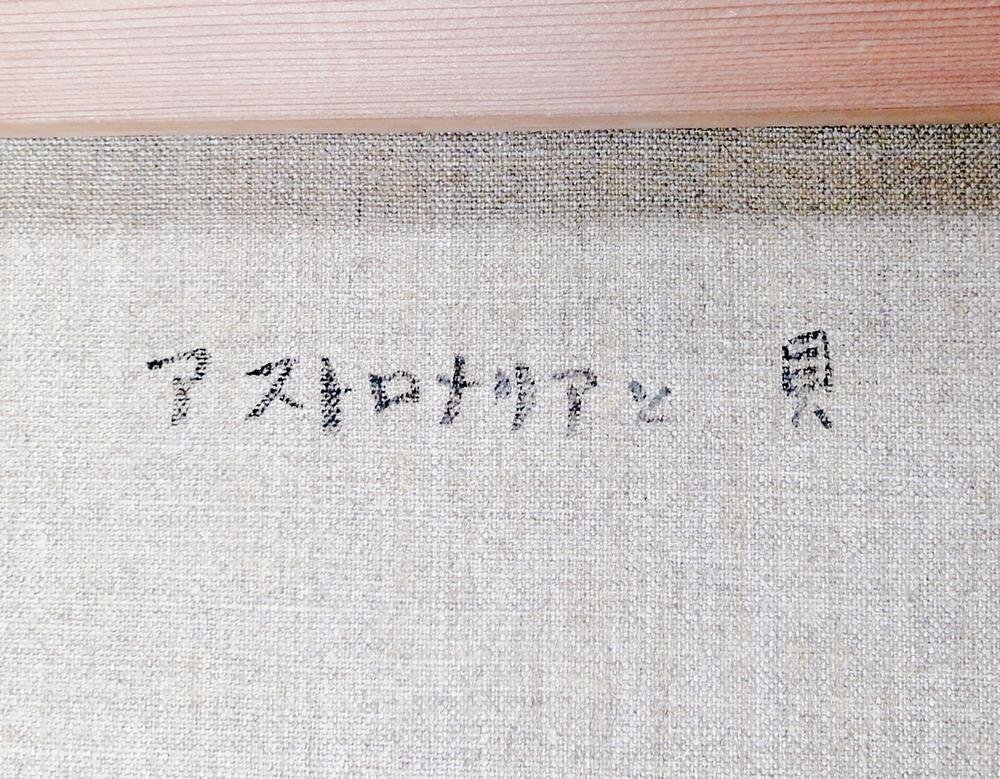 アストロナリアと 貝